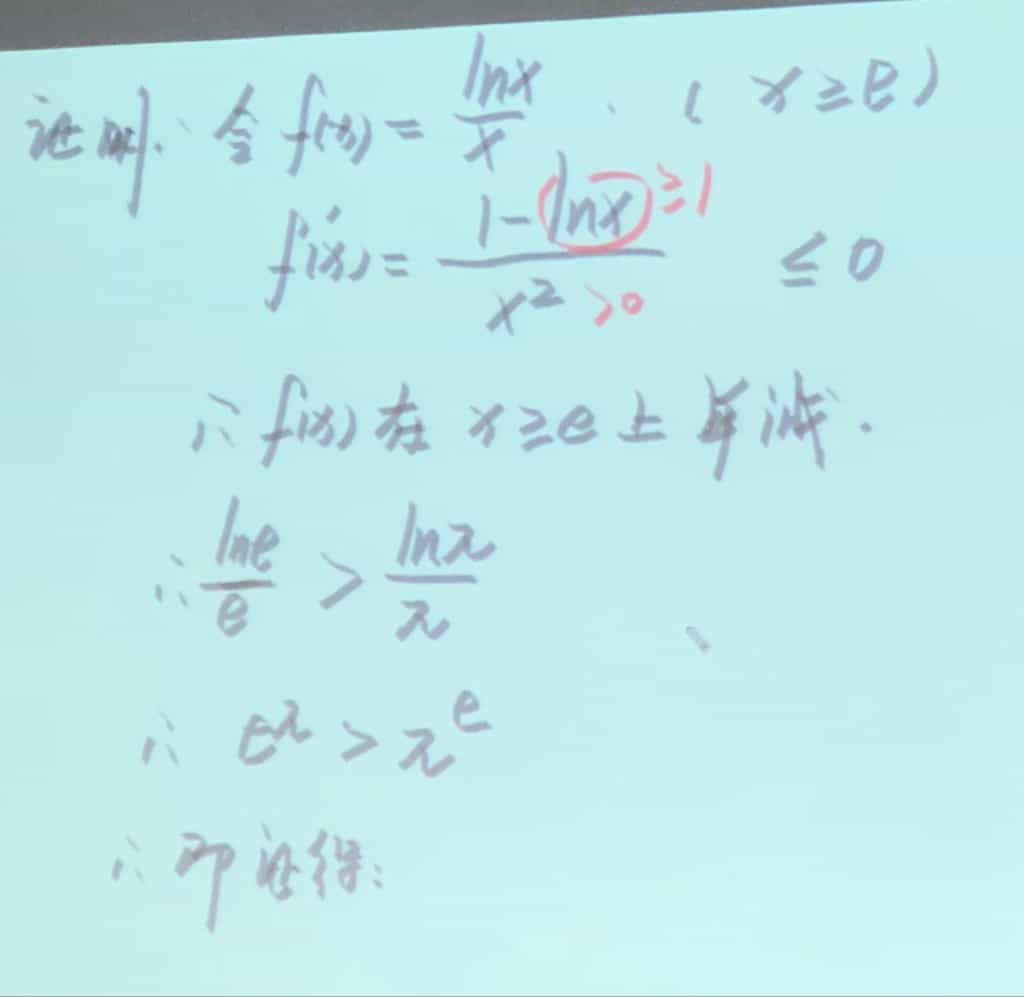 证明：令 f(x) = lnx/x . ( x ≥ e )
f'(x) = (1 - lnx)/x² ≤ 0 ≥1 >0
∴ f(x) 在 x ≥ e 上单减.
∴ lne/e > lnπ/π
∴ e^π > π^e
∴ 即证得: